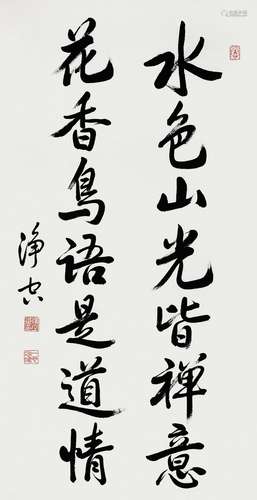 水色山光皆禅意
花香鳥语是道情
净空